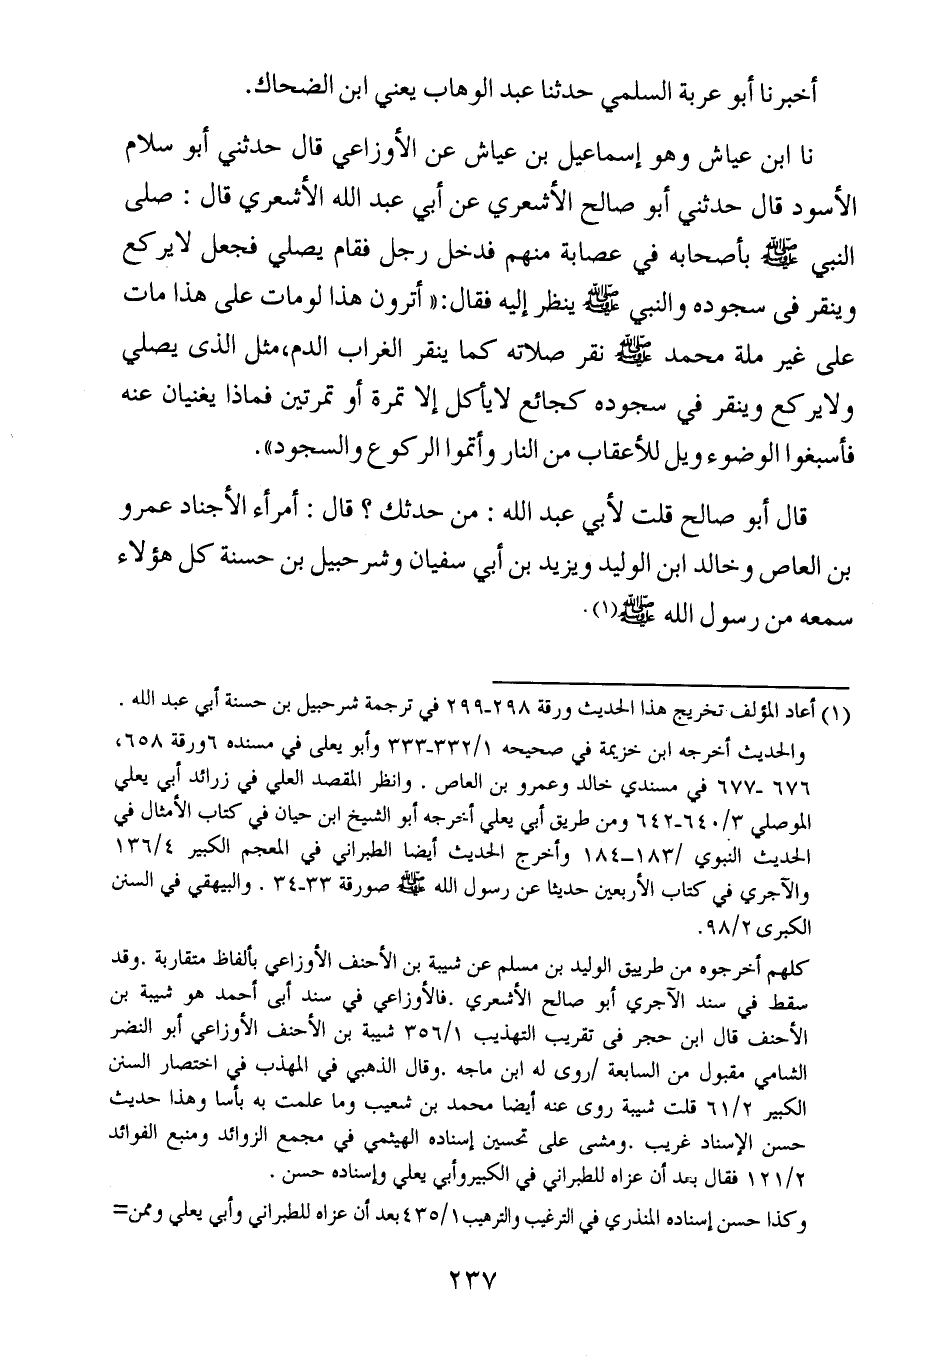 أخبرنا أبو عربة السلمي حدثنا عبد الوهاب يعني ابن الضحاك.
نا ابن عياش وهو إسماعيل بن عياش عن الأوزاعي قال حدثني أبو سلام
الأسود قال حدثني أبو صالح الأشعري عن أبي عبد الله الأشعري قال : صلى
النبي ﷺ بأصحابه في عصابة منهم فدخل رجل فقام يصلي فجعل لايركع
وينقر فى سجوده والنبي ﷺ ينظر إليه فقال:« أترون هذا لومات على هذا مات
على غير ملة محمد ﷺ نقر صلاته كما ينقر الغراب الدم،مثل الذى يصلي
ولايركع وينقر في سجوده كجائع لايأكل إلا تمرة أو تمرتين فماذا يغنيان عنه
فأسبغوا الوضوء ويل للأعقاب من النار وأتموا الركوع والسجود».
قال أبو صالح قلت لأبي عبد الله : من حدثك ؟ قال : أمرأء الأجناد عمرو
بن العاص وخالد ابن الوليد ويزيد بن أبي سفيان وشرحبيل بن حسنة كل هؤلاء
سمعه من رسول الله ﷺ(١).
(١) أعاد المؤلف تخريج هذا الحديث ورقة ٢٩٨-٢٩٩ في ترجمة شرحبيل بن حسنة أبي عبد الله .
والحديث أخرجه ابن خزيمة في صحيحه ٣٣٢/١-٣٣٣ وأبو يعلى في مسنده ٦ورقة ٦٥٨،
٦٧٦ -٦٧٧ في مسندي خالد وعمرو بن العاص . وانظر المقصد العلي في زرائد أبي يعلي
الموصلي ٦٤٠/٣-٦٤٢ ومن طريق أبي يعلي أخرجه أبو الشيخ ابن حيان في كتاب الأمثال في
الحديث النبوي /١٨٣-١٨٤ وأخرج الحديث أيضا الطبراني في المعجم الكبير ١٣٦/٤
والآجري في كتاب الأربعين حديثا عن رسول الله ﷺ صورقة ٣٣-٣٤ . والبيهقي في السنن
الكبرى ٩٨/٢.
كلهم أخرجوه من طرييق الوليد بن مسلم عن شيبة بن الأحنف الأوزاعي بألفاظ متقاربة .وقد
سقط في سند الآجري أبو صالح الأشعري .فالأوزاعي في سند أبى أحمد هو شيبة بن
الأحنف قال ابن حجر فى تقريب التهذيب ٣٥٦/١ شيبة بن الأحنف الأوزاعي أبو النضر
الشامي مقبول من السابعة /روى له ابن ماجه .وقال الذهبي في المهذب في اختصار السنن
الكبير ٦١/٢ قلت شيبة روى عنه أيضا محمد بن شعيب وما علمت به بأسا وهذا حديث
حسن الإسناد غريب .ومشى على تحسين إسناده الهيثمي في مجمع الزوائد ومنبع الفوائد
١٢١/٢ فقال بعد أن عزاه للطبراني في الكبيروأبي يعلي وإسناده حسن .
وكذا حسن إسناده المنذري في الترغيب والترهيب٤٣٥/١بعد أن عزاه للطبراني وأبي يعلي وممن=
٢٣٧